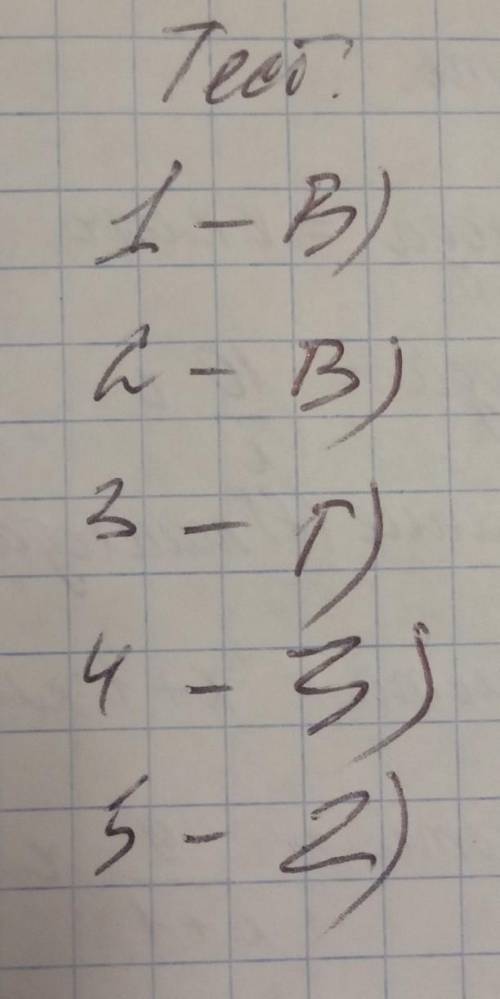 Тест.
1 - В)
2 - В)
3 - Г)
4 - 3)
5 - 2)